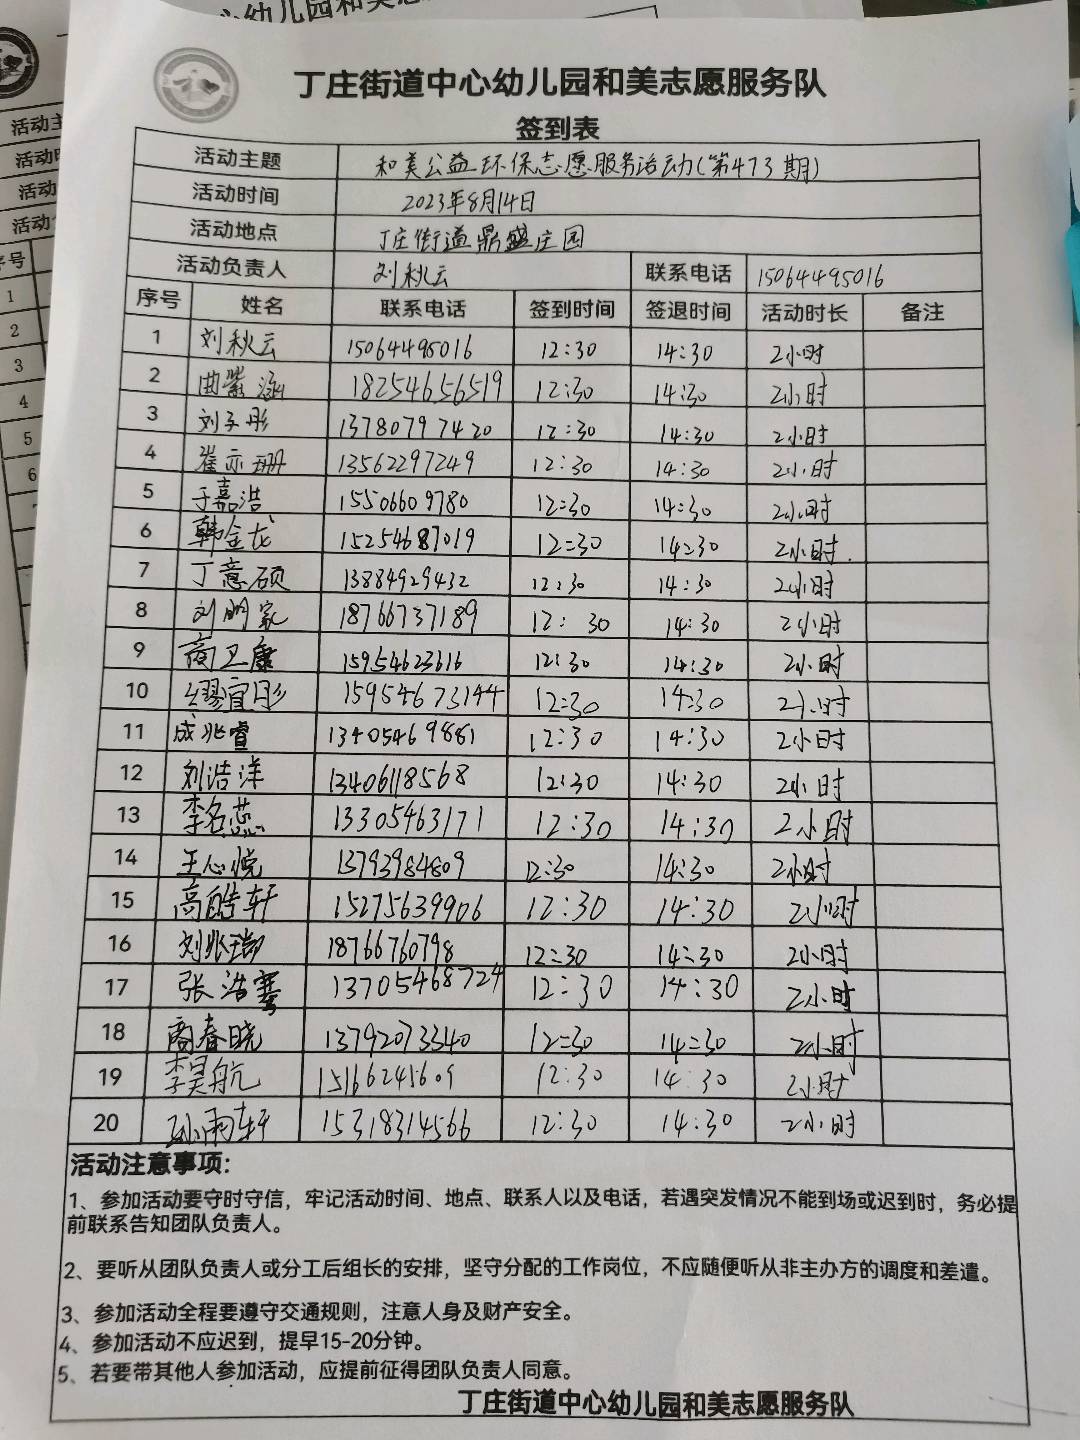 丁庄街道中心幼儿园和美志愿服务队
签到表
活动主题 和美公益环保志愿服务活动(第473期)
活动时间 2023年8月14日
活动地点 丁庄街道鼎盛庄园
活动负责人 刘秋云 联系电话 15064495016
序号 姓名 联系电话 签到时间 签退时间 活动时长 备注
1 刘秋云 15064495016 12:30 14:30 2小时
2 曲紫涵 18254656519 12:30 14:30 2小时
3 刘子彤 13780797420 12:30 14:30 2小时
4 崔亦珊 13562297249 12:30 14:30 2小时
5 于嘉浩 15506609780 12:30 14:30 2小时
6 韩金龙 15254687019 12:30 14:30 2小时
7 丁意硕 13884929432 12:30 14:30 2小时
8 刘明家 18766737189 12:30 14:30 2小时
9 商卫康 15954623616 12:30 14:30 2小时
10 缪宜彤 15954673144 12:30 14:30 2小时
11 成兆睿 13405469881 12:30 14:30 2小时
12 刘浩洋 13406118568 12:30 14:30 2小时
13 李名蕊 13305463171 12:30 14:30 2小时
14 王心悦 13793984809 12:30 14:30 2小时
15 高皓轩 15275639906 12:30 14:30 2小时
16 刘兆瑞 18766760798 12:30 14:30 2小时
17 张浩骞 13705468724 12:30 14:30 2小时
18 商春晓 13792073340 12:30 14:30 2小时
19 李昊航 15166245609 12:30 14:30 2小时
20 孙雨轩 15318314566 12:30 14:30 2小时
活动注意事项：
1、参加活动要守时守信，牢记活动时间、地点、联系人以及电话，若遇突发情况不能到场或迟到时，务必提
前联系告知团队负责人。
2、要听从团队负责人或分工后组长的安排，坚守分配的工作岗位，不应随便听从非主办方的调度和差遣。
3、参加活动全程要遵守交通规则，注意人身及财产安全。
4、参加活动不应迟到，提早15-20分钟。
5、若要带其他人参加活动，应提前征得团队负责人同意。
丁庄街道中心幼儿园和美志愿服务队